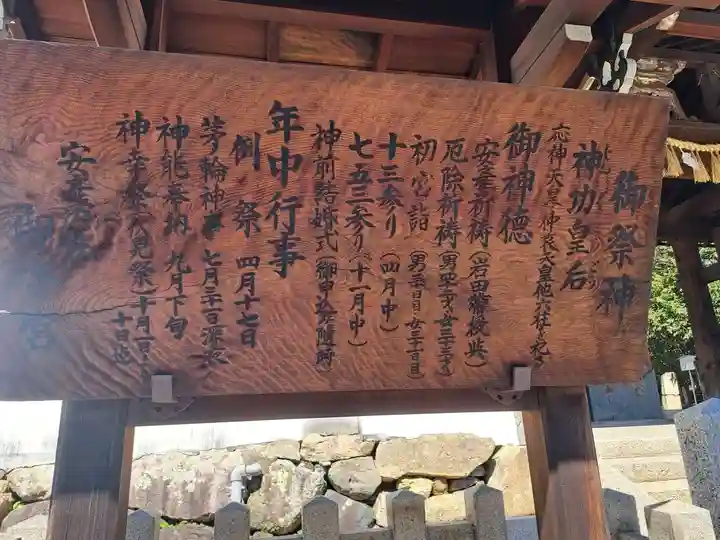 御祭神
神功皇后
応神天皇 仲哀天皇他六柱を祀る
御神徳
安産祈祷(岩田帯授与)
厄除祈祷(男四二才・女三三才)
初宮詣(男三十日目・女三十一日目)
十三参り(四月中)
七五三参り(十一月中)
神前結婚式(御申込随時)
年中行事
例祭 四月十七日
茅輪神事 七月三十一日深夜
神能奉納 九月下旬
神幸祭 伏見祭 十月一日〜十日迄
安産
御香宮